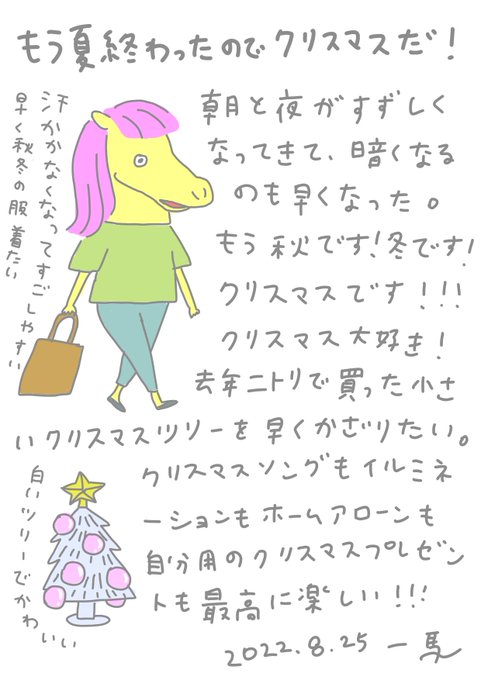 もう夏終わったのでクリスマスだ!
朝と夜がすずしく
なってきて、暗くなる
のも早くなった。
もう秋です!冬です!
クリスマスです!!!
クリスマス大好き!
去年ニトリで買った小さ
いクリスマスツリーを早くかざりたい。
クリスマスソングもイルミネ
ーションもホームアローンも
自分用のクリスマスプレゼン
トも最高に楽しい!!!
2022.8.25 一馬
汗かかなくなってすごしやすい
早く秋冬の服着たい
白いツリーでかわいい